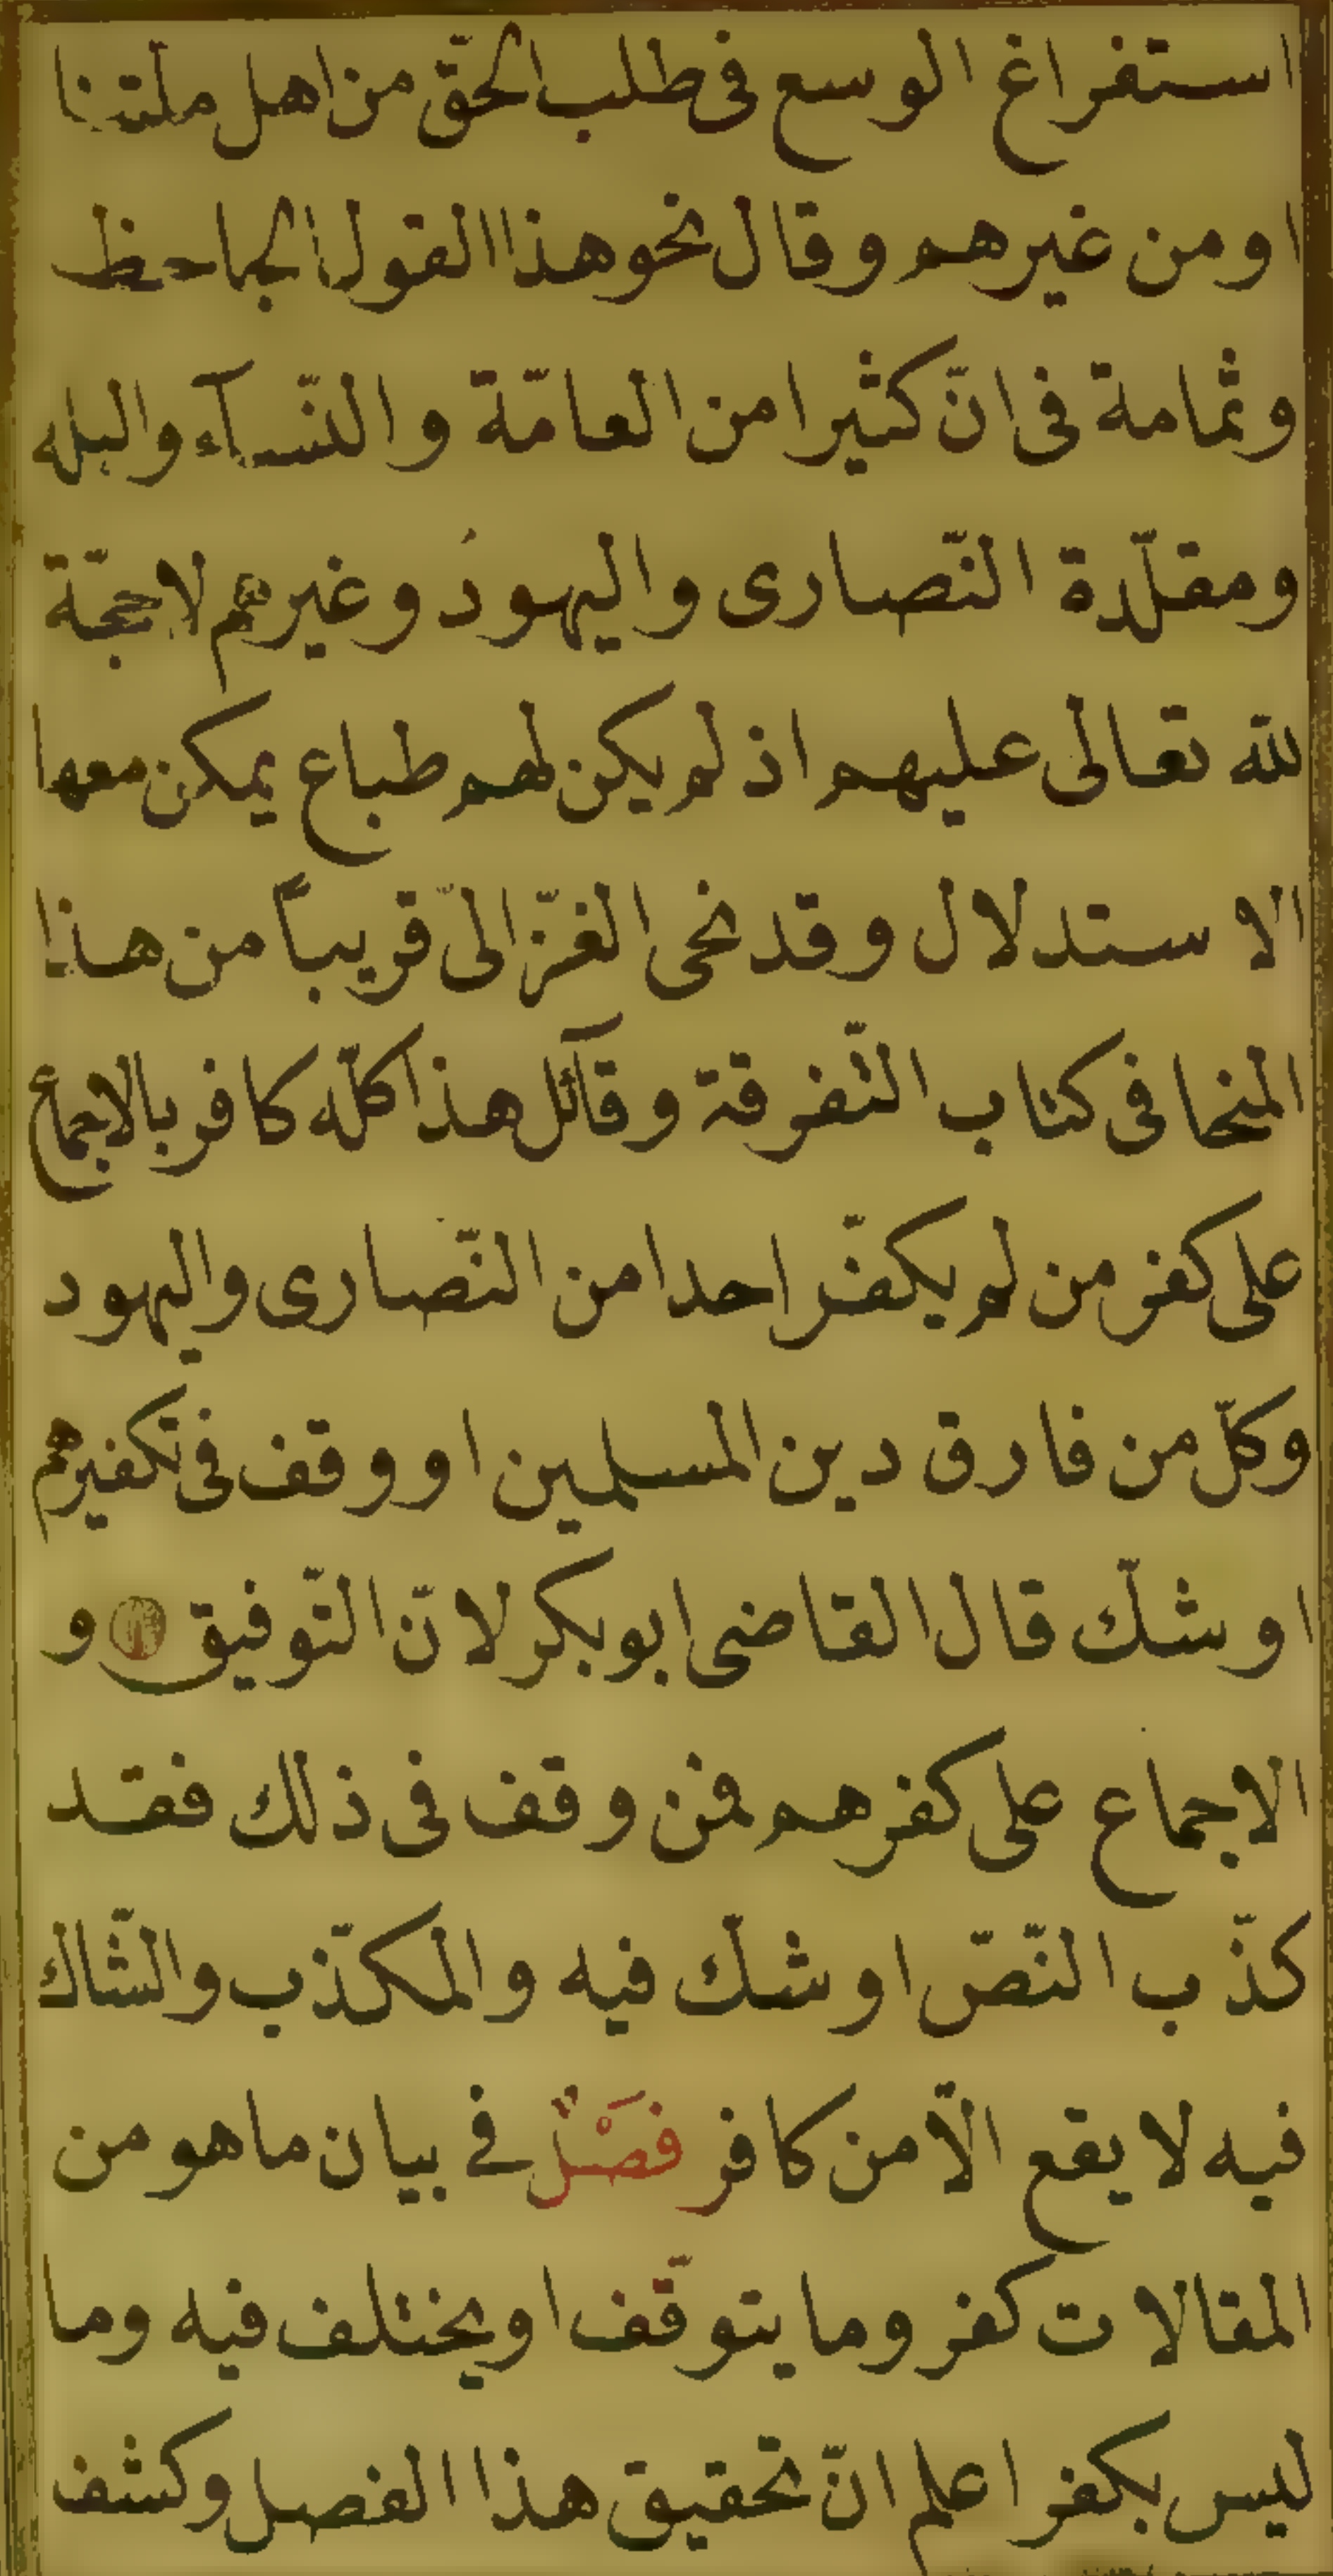 استفراغ الوسع فى طلب الحقّ من اهل ملّتنا
او من غيرهم وقال نحو هذا القول الجاحظ
وثمامة فى انّ كثيرا من العامّة والنّسآء والبله
ومقلّدة النّصارى واليهودُ وغيرهم لا حجّة
لله تعالى عليهم اذ لم يكن لهم طباع يمكن معها
الاستدلال وقد نحى الغزّالىّ قريباً من هذا
المنحا فى كتاب التّفرقة وقآئل هذا كلّه كافر بالاجماع
على كفر من لم يكفّر احدا من النّصارى واليهود
وكلّ من فارق دين المسلمين او وقف فى تكفيرهم
او شكّ قال القاضى ابو بكر لانّ التّوفيق و
الاجماع على كفرهم فمن وقف فى ذلك فقد
كذّب النّصّ او شكّ فيه والمكذّب والشّاك
فيه لا يقع الّا من كافر فَصْلٌ في بيان ما هو من
المقالات كفر وما يتوقّف او يختلف فيه وما
ليس بكفر اعلم انّ تحقيق هذا الفصل وكشف